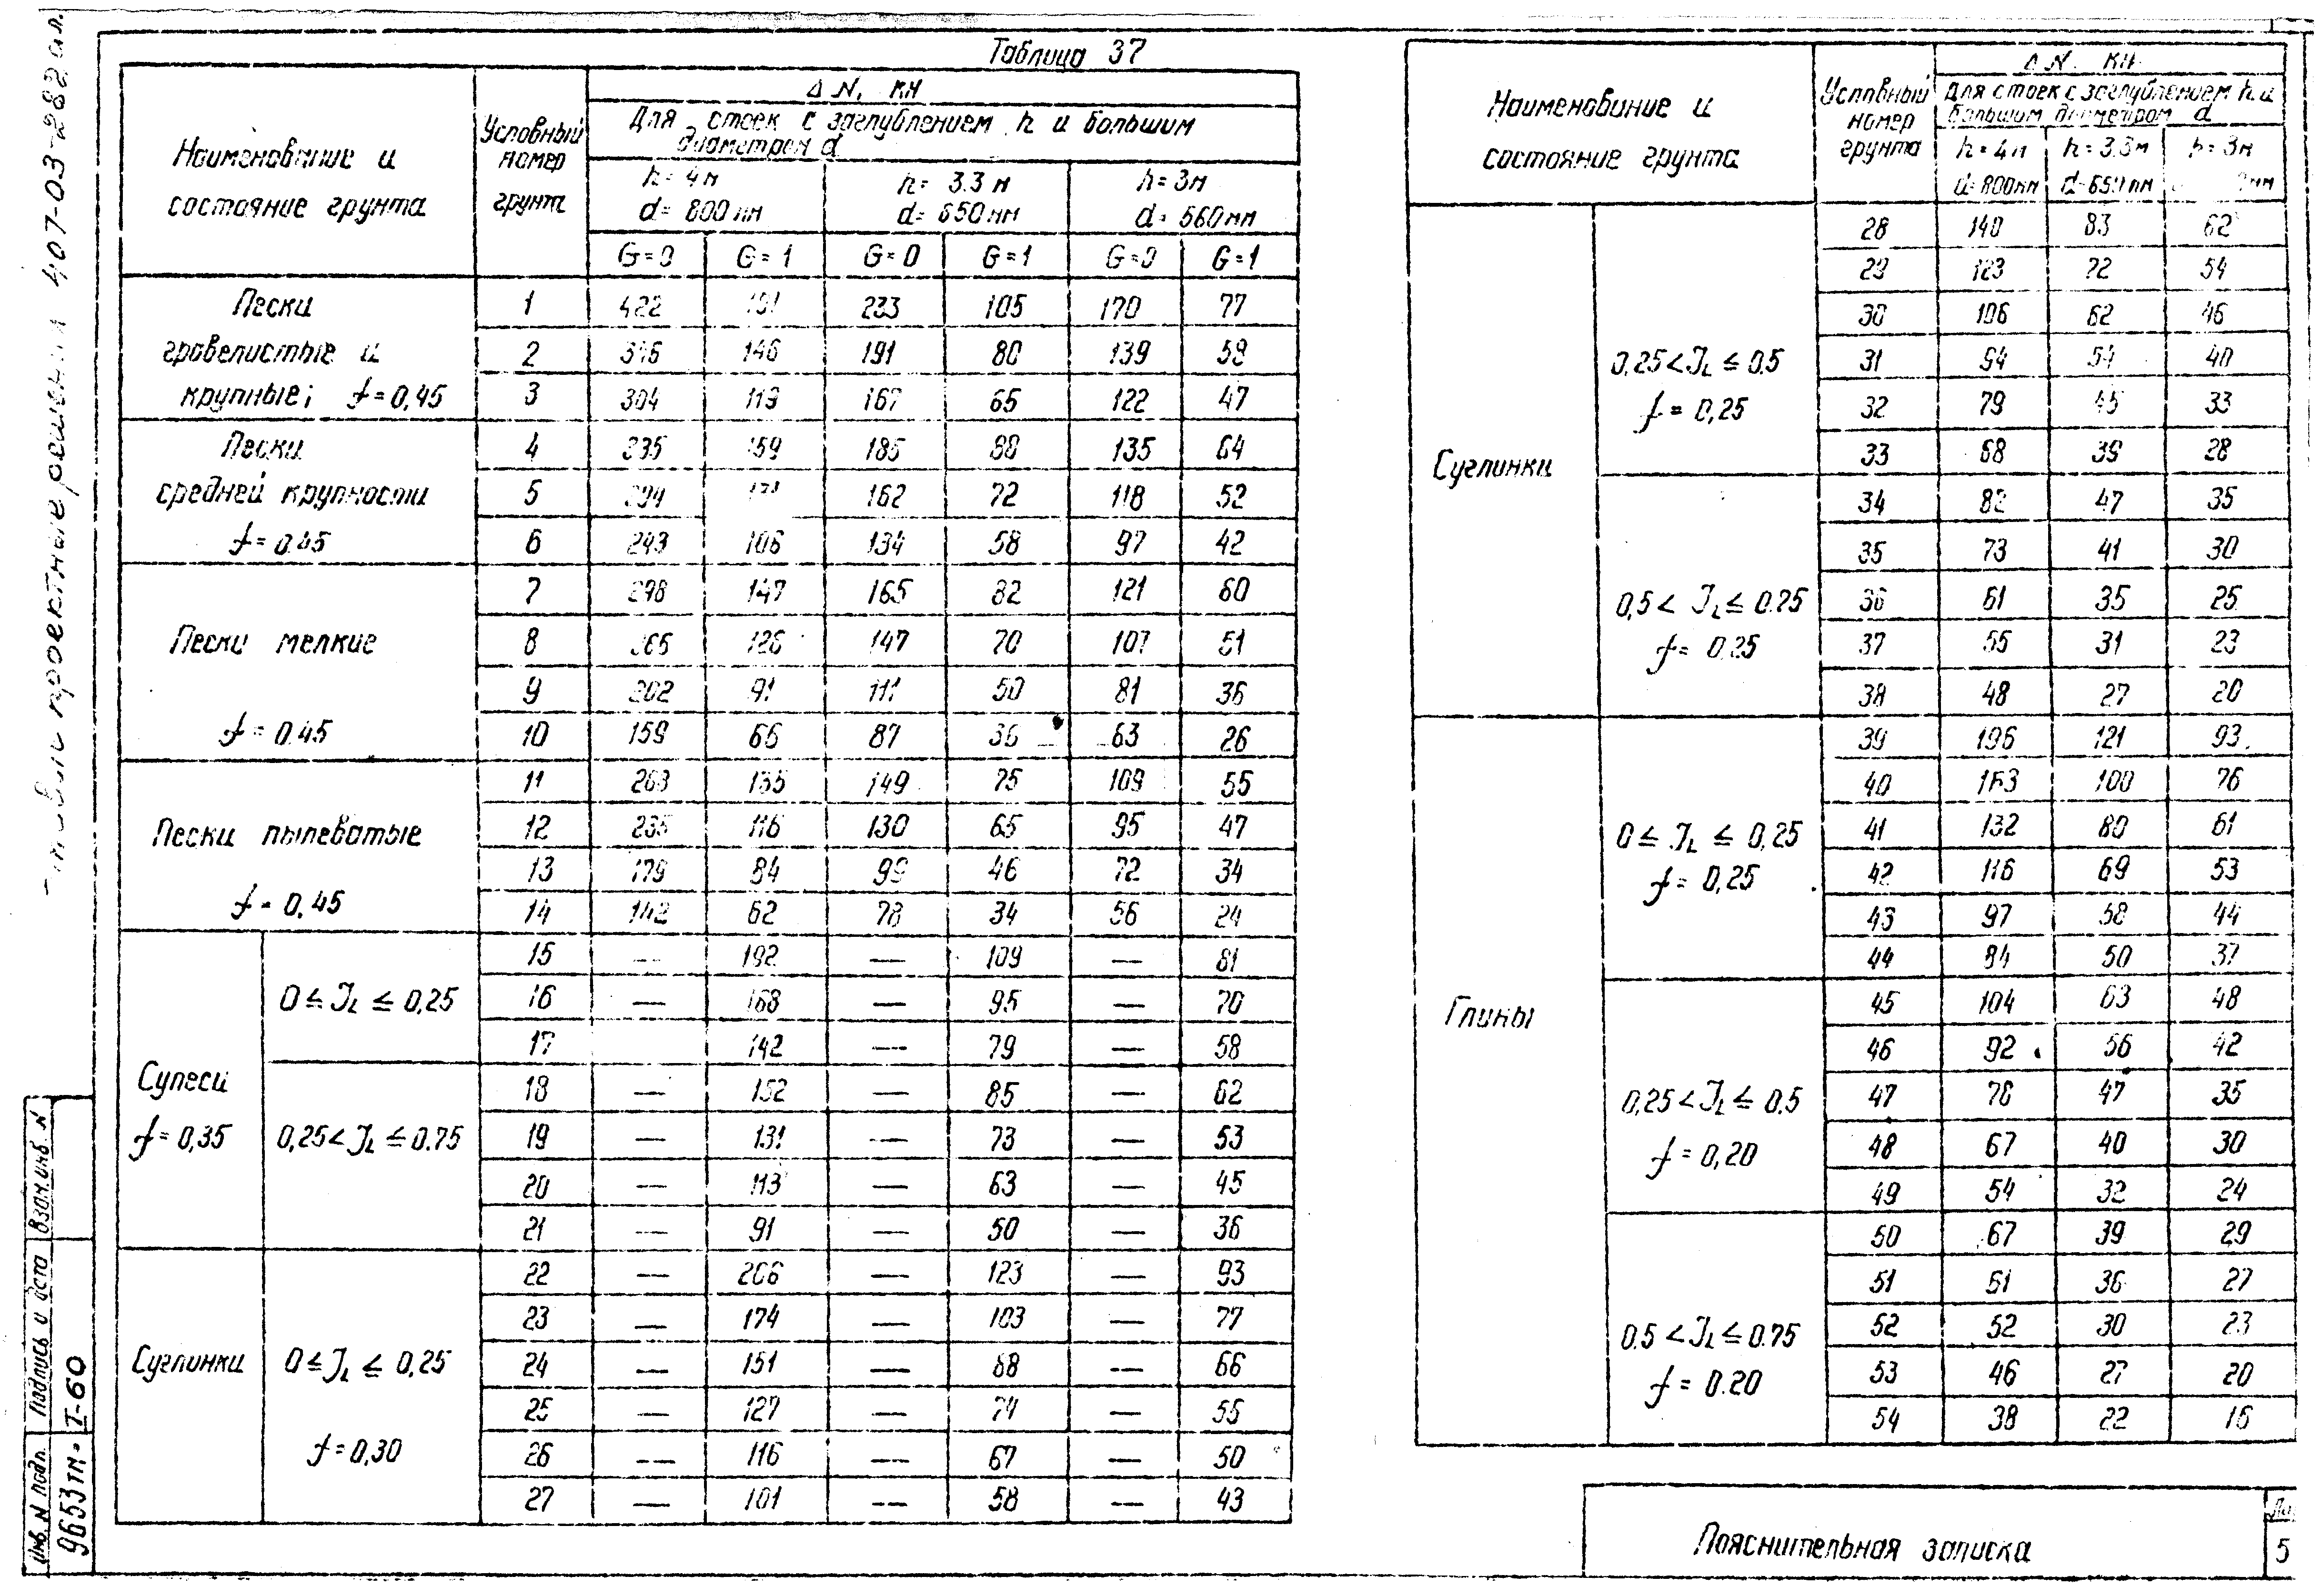 Таблица 37
Наименование и состояние грунта
Условный номер грунта
Δ N, кН
Для стоек с заглублением h и большим диаметром d
h = 4 м d = 800 мм
h = 3.3 м d = 650 мм
h = 3 м d = 560 мм
G=0 G=1 G=0 G=1 G=0 G=1
Пески гравелистые и крупные; f=0,45
1 422 191 233 105 170 77
2 346 146 191 80 139 59
3 304 119 167 65 122 47
Пески средней крупности f=0.45
4 335 159 185 88 135 64
5 294 162 72 118 52
6 243 106 134 58 97 42
Пески мелкие f=0.45
7 298 147 165 82 121 60
8 126 147 70 107 51
9 202 91 111 50 81 36
10 159 66 87 36 63 26
Пески пылеватые f=0,45
11 263 135 149 75 109 55
12 235 116 130 65 95 47
13 179 84 99 46 72 34
14 142 62 78 34 56 24
Супеси f=0,35
0 ≤ JL ≤ 0,25
15 — 192 — 109 — 81
16 — 168 — 95 — 70
17 142 — 79 — 58
0,25 < JL ≤ 0.75
18 — 152 — 85 — 62
19 — 131 — 73 — 53
20 — 113 — 63 — 45
21 — 91 — 50 — 36
Суглинки
0 ≤ JL ≤ 0,25
f=0,30
22 — 206 — 123 — 93
23 — 174 — 103 — 77
24 — 151 — 88 — 66
25 — 127 — 74 — 55
26 — 116 — 67 — 50
27 — 101 — 58 — 43
Наименование и состояние грунта
Условный номер грунта
Δ N, кН
Для стоек с заглублением h и большим диаметром d
h=4м d=800мм
h=3.3м d=650мм
h=3м мм
Суглинки
0,25 < JL ≤ 0.5
f = 0,25
28 140 83 62
29 123 72 54
30 106 62 46
31 94 54 40
32 79 45 33
33 68 39 28
0,5 < JL ≤ 0.75
f = 0,25
34 82 47 35
35 73 41 30
36 61 35 25
37 55 31 23
38 48 27 20
Глины
0 ≤ JL ≤ 0,25
f = 0,25
39 196 121 93
40 163 100 76
41 132 80 61
42 116 69 53
43 97 58 44
44 84 50 37
0,25 < JL ≤ 0.5
f = 0,20
45 104 63 48
46 92 56 42
47 78 47 35
48 67 40 30
49 54 32 24
0.5 < JL ≤ 0.75
f = 0.20
50 67 39 29
51 61 36 27
52 52 30 23
53 46 27 20
54 38 22 16
Пояснительная записка
5
проектные решения 407-03-282
Взам. инв. N
Подпись и дата
Инв. N подл.
9653тм-I-60